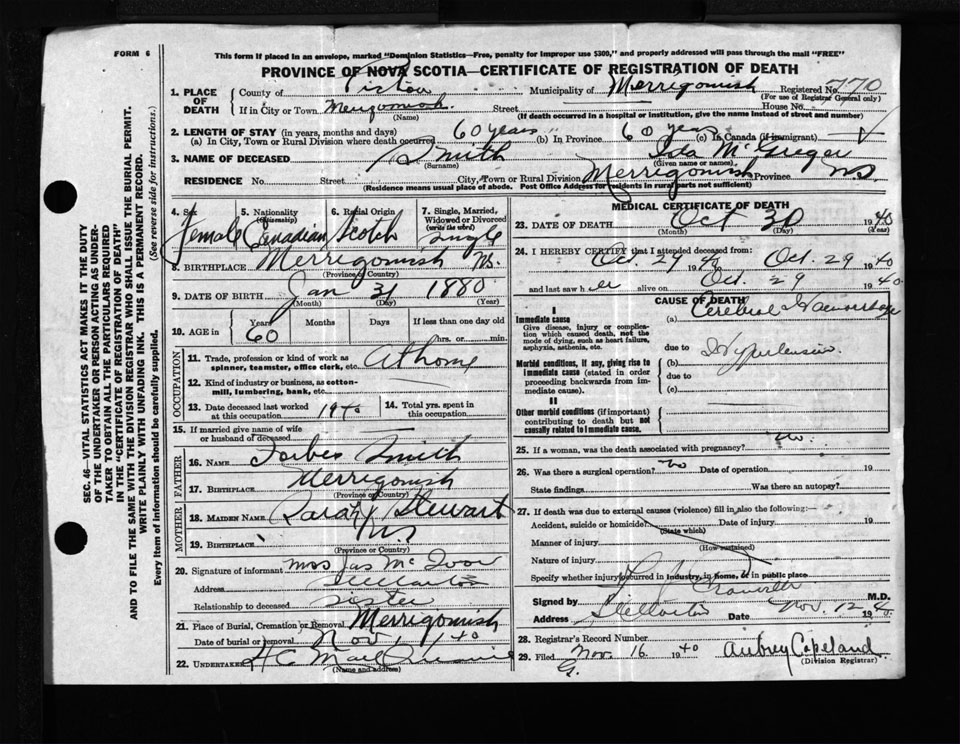 FORM 6
This form if placed in an envelope, marked "Dominion Statistics—Free, penalty for improper use $300," and properly addressed will pass through the mail "FREE"
PROVINCE OF NOVA SCOTIA—CERTIFICATE OF REGISTRATION OF DEATH
SEC. 46—VITAL STATISTICS ACT MAKES IT THE DUTY
OF THE UNDERTAKER OR PERSON ACTING AS UNDER-
TAKER TO OBTAIN ALL THE PARTICULARS REQUIRED
IN THE "CERTIFICATE OF REGISTRATION OF DEATH"
AND TO FILE THE SAME WITH THE DIVISION REGISTRAR WHO SHALL ISSUE THE BURIAL PERMIT.
WRITE PLAINLY WITH UNFADING INK. THIS IS A PERMANENT RECORD.
Every item of information should be carefully supplied. (See reverse side for instructions.)
1. PLACE OF DEATH County of Pictou Municipality of Merrigomish Registered No. 770
(For use of Registrar General only)
If in City or Town Merigomish Street House No.
(Name) (If death occurred in a hospital or institution, give the name instead of street and number)
2. LENGTH OF STAY (in years, months and days)
(a) In City, Town or Rural Division where death occurred 60 years (b) In Province 60 years (c) In Canada (if immigrant)
3. NAME OF DECEASED Smith Ida McGregor
(Surname) (Given name or names)
RESIDENCE No. Street City, Town or Rural Division Merrigomish Province NS.
(Residence means usual place of abode. Post Office Address for residents in rural parts not sufficient)
4. Sex 5. Nationality (Citizenship) 6. Racial Origin 7. Single, Married, Widowed or Divorced (write the word)
female Canadian Scotch single
8. BIRTHPLACE Merrigomish NS.
(Province or Country)
9. DATE OF BIRTH Jan 31 1880
(Month) (Day) (Year)
10. AGE in Years Months Days If less than one day old
60 hrs. or min.
OCCUPATION
11. Trade, profession or kind of work as spinner, teamster, office clerk, etc. At home
12. Kind of industry or business, as cotton-mill, lumbering, bank, etc.
13. Date deceased last worked at this occupation 1940 14. Total yrs. spent in this occupation
15. If married give name of wife or husband of deceased
FATHER
16. NAME Forbes Smith
17. BIRTHPLACE Merrigomish
(Province or Country)
MOTHER
18. MAIDEN NAME Sarah J Stewart
19. BIRTHPLACE N.S
(Province or Country)
20. Signature of informant Mrs Jas McIvor
Address Stellarton
Relationship to deceased sister
21. Place of Burial, Cremation or Removal Merrigomish
Date of burial or removal Nov 1 40
22. UNDERTAKER H C
(Name and address)
MEDICAL CERTIFICATE OF DEATH
23. DATE OF DEATH Oct 30 1940
(Month) (Day) (Year)
24. I HEREBY CERTIFY that I attended deceased from:
Oct. 29 1940 Oct. 29 1940
and last saw her alive on Oct. 29 1940
CAUSE OF DEATH
I
Immediate cause (a) Cerebral Haemorrhage
Give disease, injury or complication which caused death, not the mode of dying, such as heart failure, asphyxia, asthenia, etc.
due to Hypertension
Morbid conditions, if any, giving rise to immediate cause (stated in order proceeding backwards from immediate cause).
(b)
due to
(c)
II
Other morbid conditions (if important) contributing to death but not causally related to immediate cause.
25. If a woman, was the death associated with pregnancy? No.
26. Was there a surgical operation? No Date of operation 19
State findings Was there an autopsy?
27. If death was due to external causes (violence) fill in also the following:
Accident, suicide or homicide Date of injury 19
(State which)
Manner of injury
(How sustained)
Nature of injury
Specify whether injury occurred in industry, in home, or in public place
Signed by M.D.
Address Stellarton Date Nov. 12 1940.
28. Registrar's Record Number
29. Filed Nov. 16 1940 Aubrey Copeland
(Division Registrar)
G.